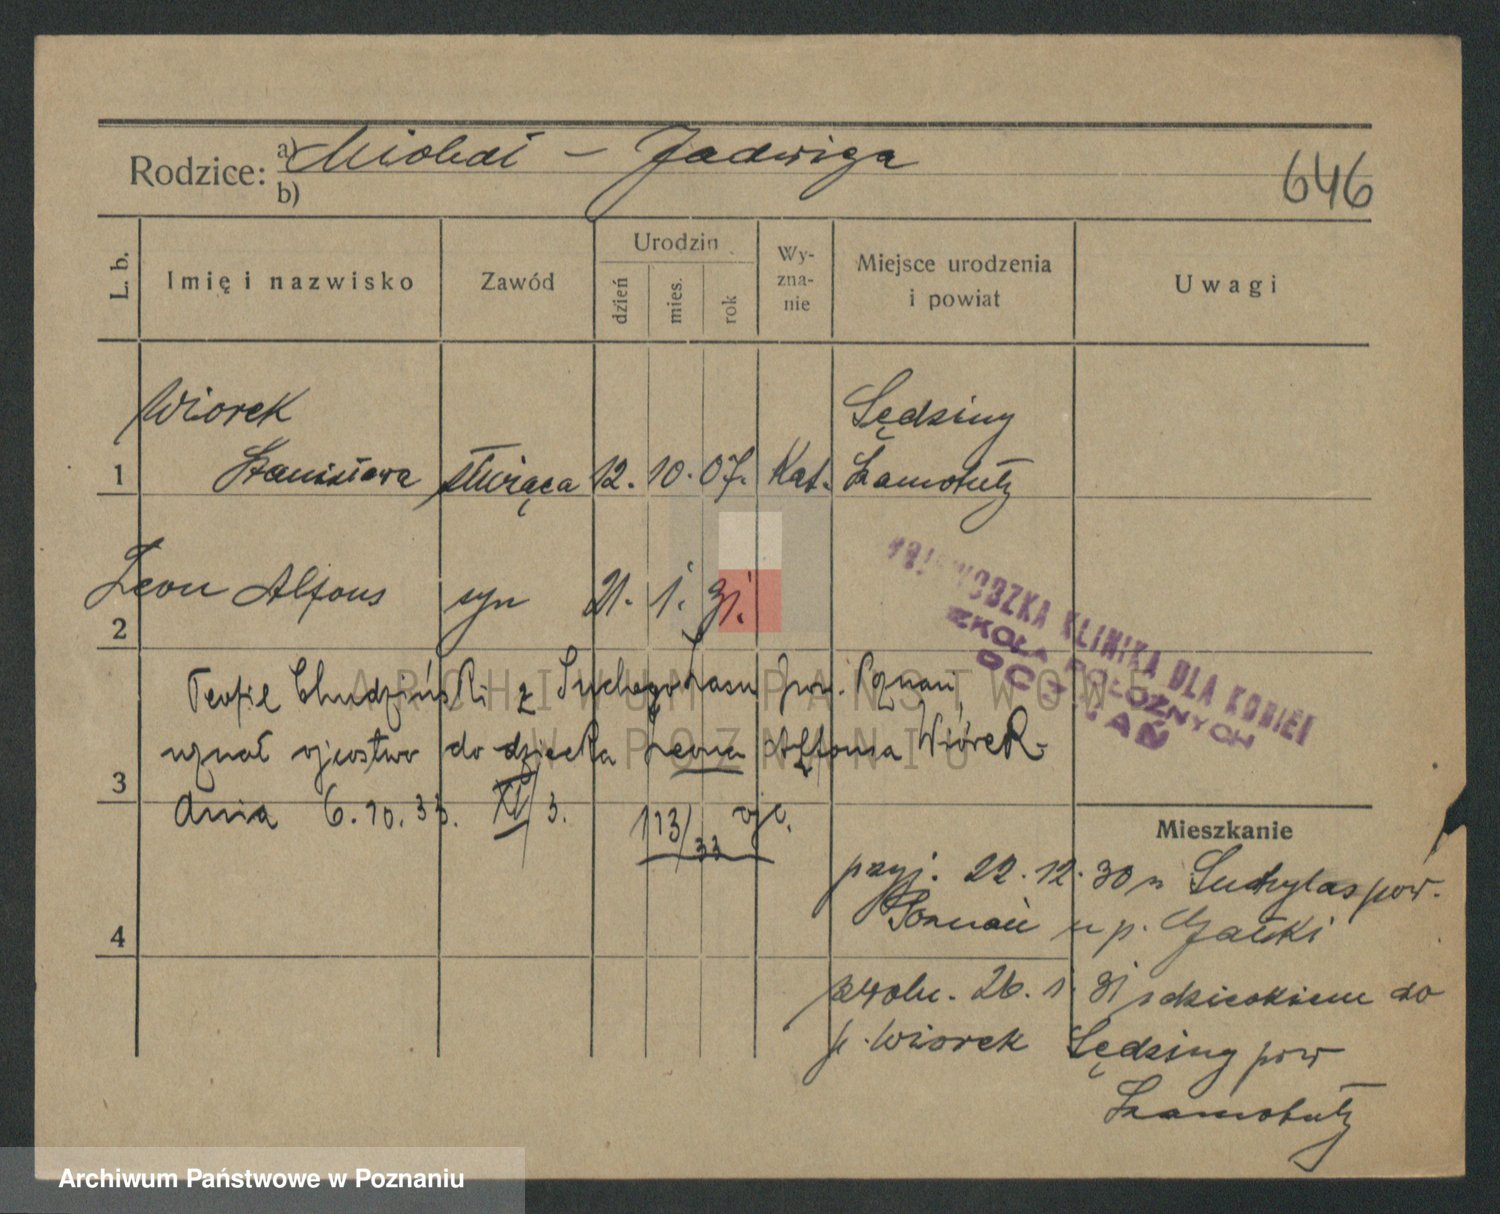 Rodzice: a) Michał - Jadwiga
b)
646
L. b. Imię i nazwisko Zawód Urodzin dzień mies. rok Wy-zna-nie Miejsce urodzenia i powiat Uwagi
Wiorek Sędziny
1 Stanisława służąca 12. 10. 07. Kat. Szamotuły
2 Leon Alfons syn 21. 1. 31.
WOJEWÓDZKA KLINIKA DLA KOBIET
SZKOŁA POŁOŻNYCH
Teofil Chudziński z Suchego Lasu pow. Poznań,
uznał ojcostwo do dziecka Leona Alfonsa Wiórek
3
dnia 6.10.33. XI/3. 113/33 ojc.
Mieszkanie
przyj. 22.12.30 z Suchylas pow.
Poznań u p. Gałski
4
zwoln. 26. 1. 31 z dzieckiem do
p. Wiorek Sędziny pow
Szamotuły
ARCHIWUM PAŃSTWOWE
W POZNANIU
Archiwum Państwowe w Poznaniu